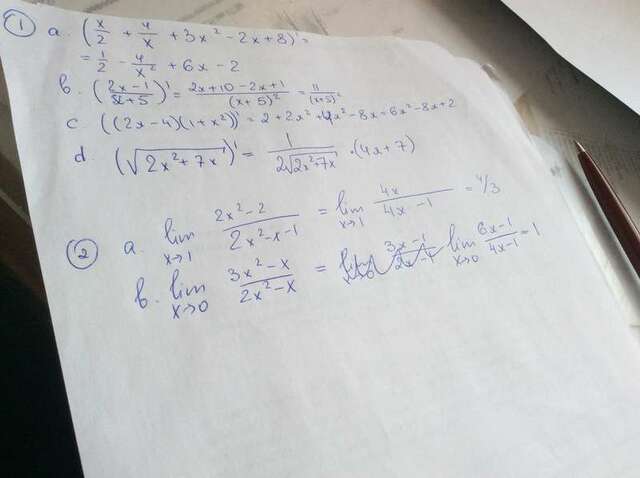 ① a. (x/2 + 4/x + 3x² - 2x + 8)' =
= 1/2 - 4/x² + 6x - 2
b. ((2x-1)/(x+5))' = (2x+10-2x+1)/(x+5)² = 11/(x+5)²
c. ((2x-4)(1+x²))' = 2+2x²+4x²-8x=6x²-8x+2
d. (√(2x²+7x))' = 1/(2√(2x²+7x)) · (4x+7)
② a. lim x→1 (2x²-2)/(2x²-x-1) = lim x→1 4x/(4x-1) = 4/3
b. lim x→0 (3x²-x)/(2x²-x) = lim x→0 (6x-1)/(4x-1) = 1